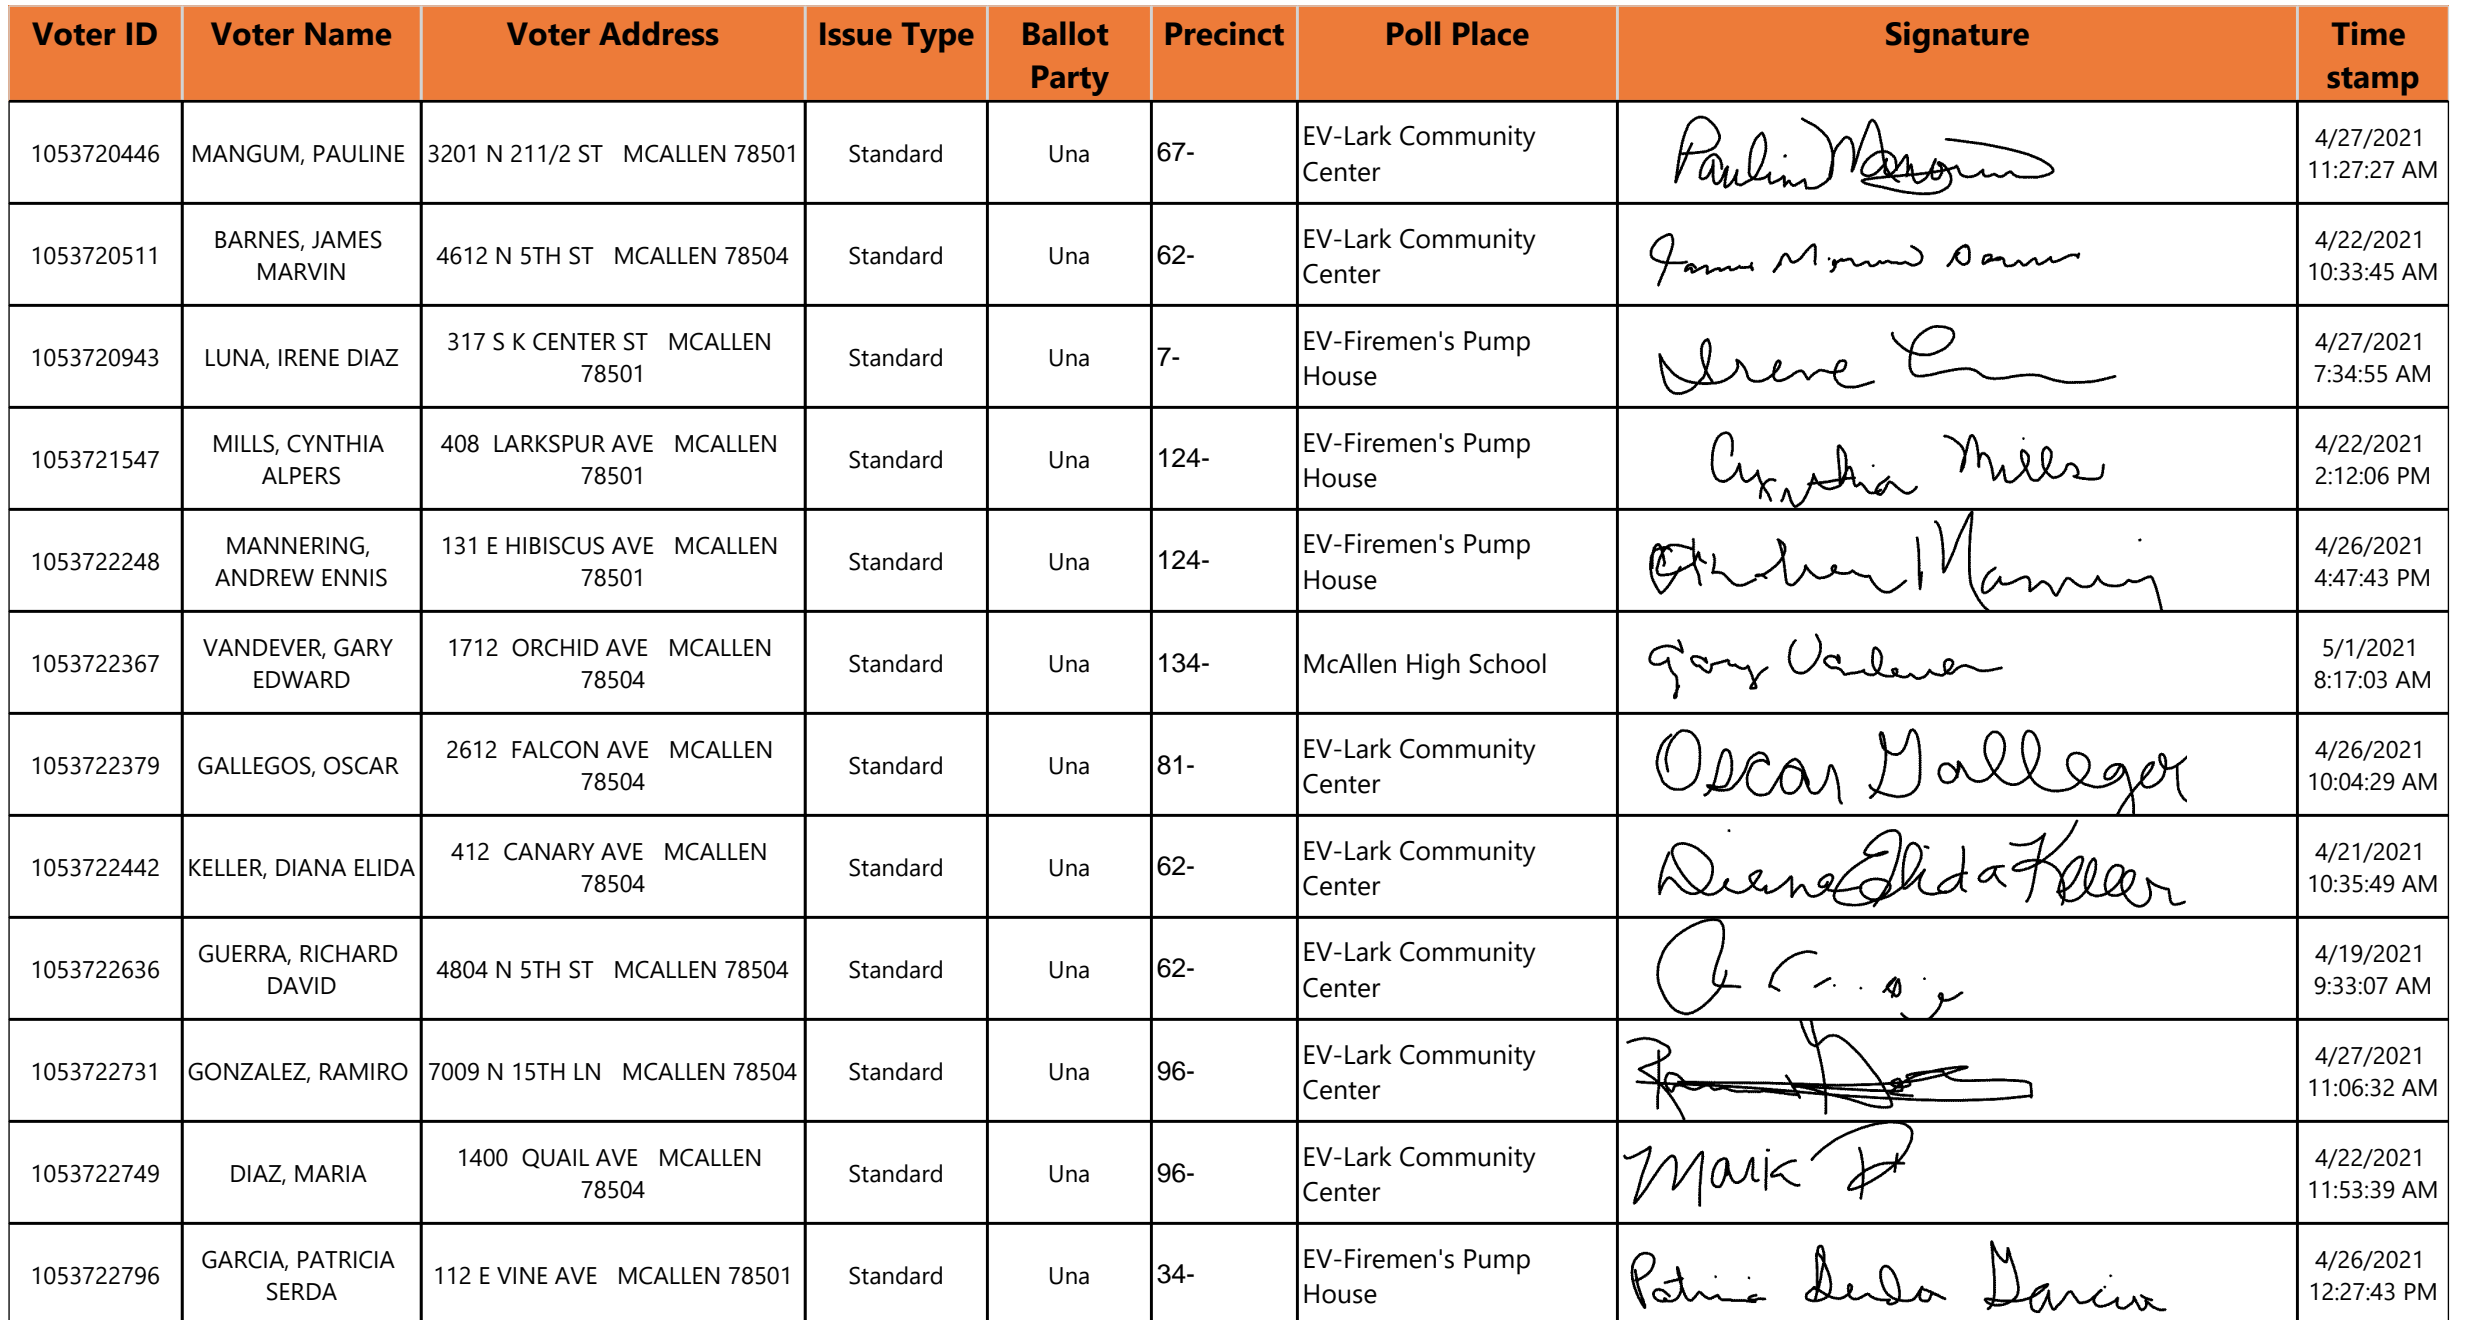 Voter ID Voter Name Voter Address Issue Type Ballot Party Precinct Poll Place Signature Time stamp
1053720446 MANGUM, PAULINE 3201 N 211/2 ST MCALLEN 78501 Standard Una 67- EV-Lark Community Center 4/27/2021 11:27:27 AM
1053720511 BARNES, JAMES MARVIN 4612 N 5TH ST MCALLEN 78504 Standard Una 62- EV-Lark Community Center 4/22/2021 10:33:45 AM
1053720943 LUNA, IRENE DIAZ 317 S K CENTER ST MCALLEN 78501 Standard Una 7- EV-Firemen's Pump House Irene 4/27/2021 7:34:55 AM
1053721547 MILLS, CYNTHIA ALPERS 408 LARKSPUR AVE MCALLEN 78501 Standard Una 124- EV-Firemen's Pump House Cynthia Mills 4/22/2021 2:12:06 PM
1053722248 MANNERING, ANDREW ENNIS 131 E HIBISCUS AVE MCALLEN 78501 Standard Una 124- EV-Firemen's Pump House 4/26/2021 4:47:43 PM
1053722367 VANDEVER, GARY EDWARD 1712 ORCHID AVE MCALLEN 78504 Standard Una 134- McAllen High School Gary 5/1/2021 8:17:03 AM
1053722379 GALLEGOS, OSCAR 2612 FALCON AVE MCALLEN 78504 Standard Una 81- EV-Lark Community Center Oscar Gallegos 4/26/2021 10:04:29 AM
1053722442 KELLER, DIANA ELIDA 412 CANARY AVE MCALLEN 78504 Standard Una 62- EV-Lark Community Center Diana Elida Keller 4/21/2021 10:35:49 AM
1053722636 GUERRA, RICHARD DAVID 4804 N 5TH ST MCALLEN 78504 Standard Una 62- EV-Lark Community Center 4/19/2021 9:33:07 AM
1053722731 GONZALEZ, RAMIRO 7009 N 15TH LN MCALLEN 78504 Standard Una 96- EV-Lark Community Center 4/27/2021 11:06:32 AM
1053722749 DIAZ, MARIA 1400 QUAIL AVE MCALLEN 78504 Standard Una 96- EV-Lark Community Center Maria D 4/22/2021 11:53:39 AM
1053722796 GARCIA, PATRICIA SERDA 112 E VINE AVE MCALLEN 78501 Standard Una 34- EV-Firemen's Pump House Serda Garcia 4/26/2021 12:27:43 PM